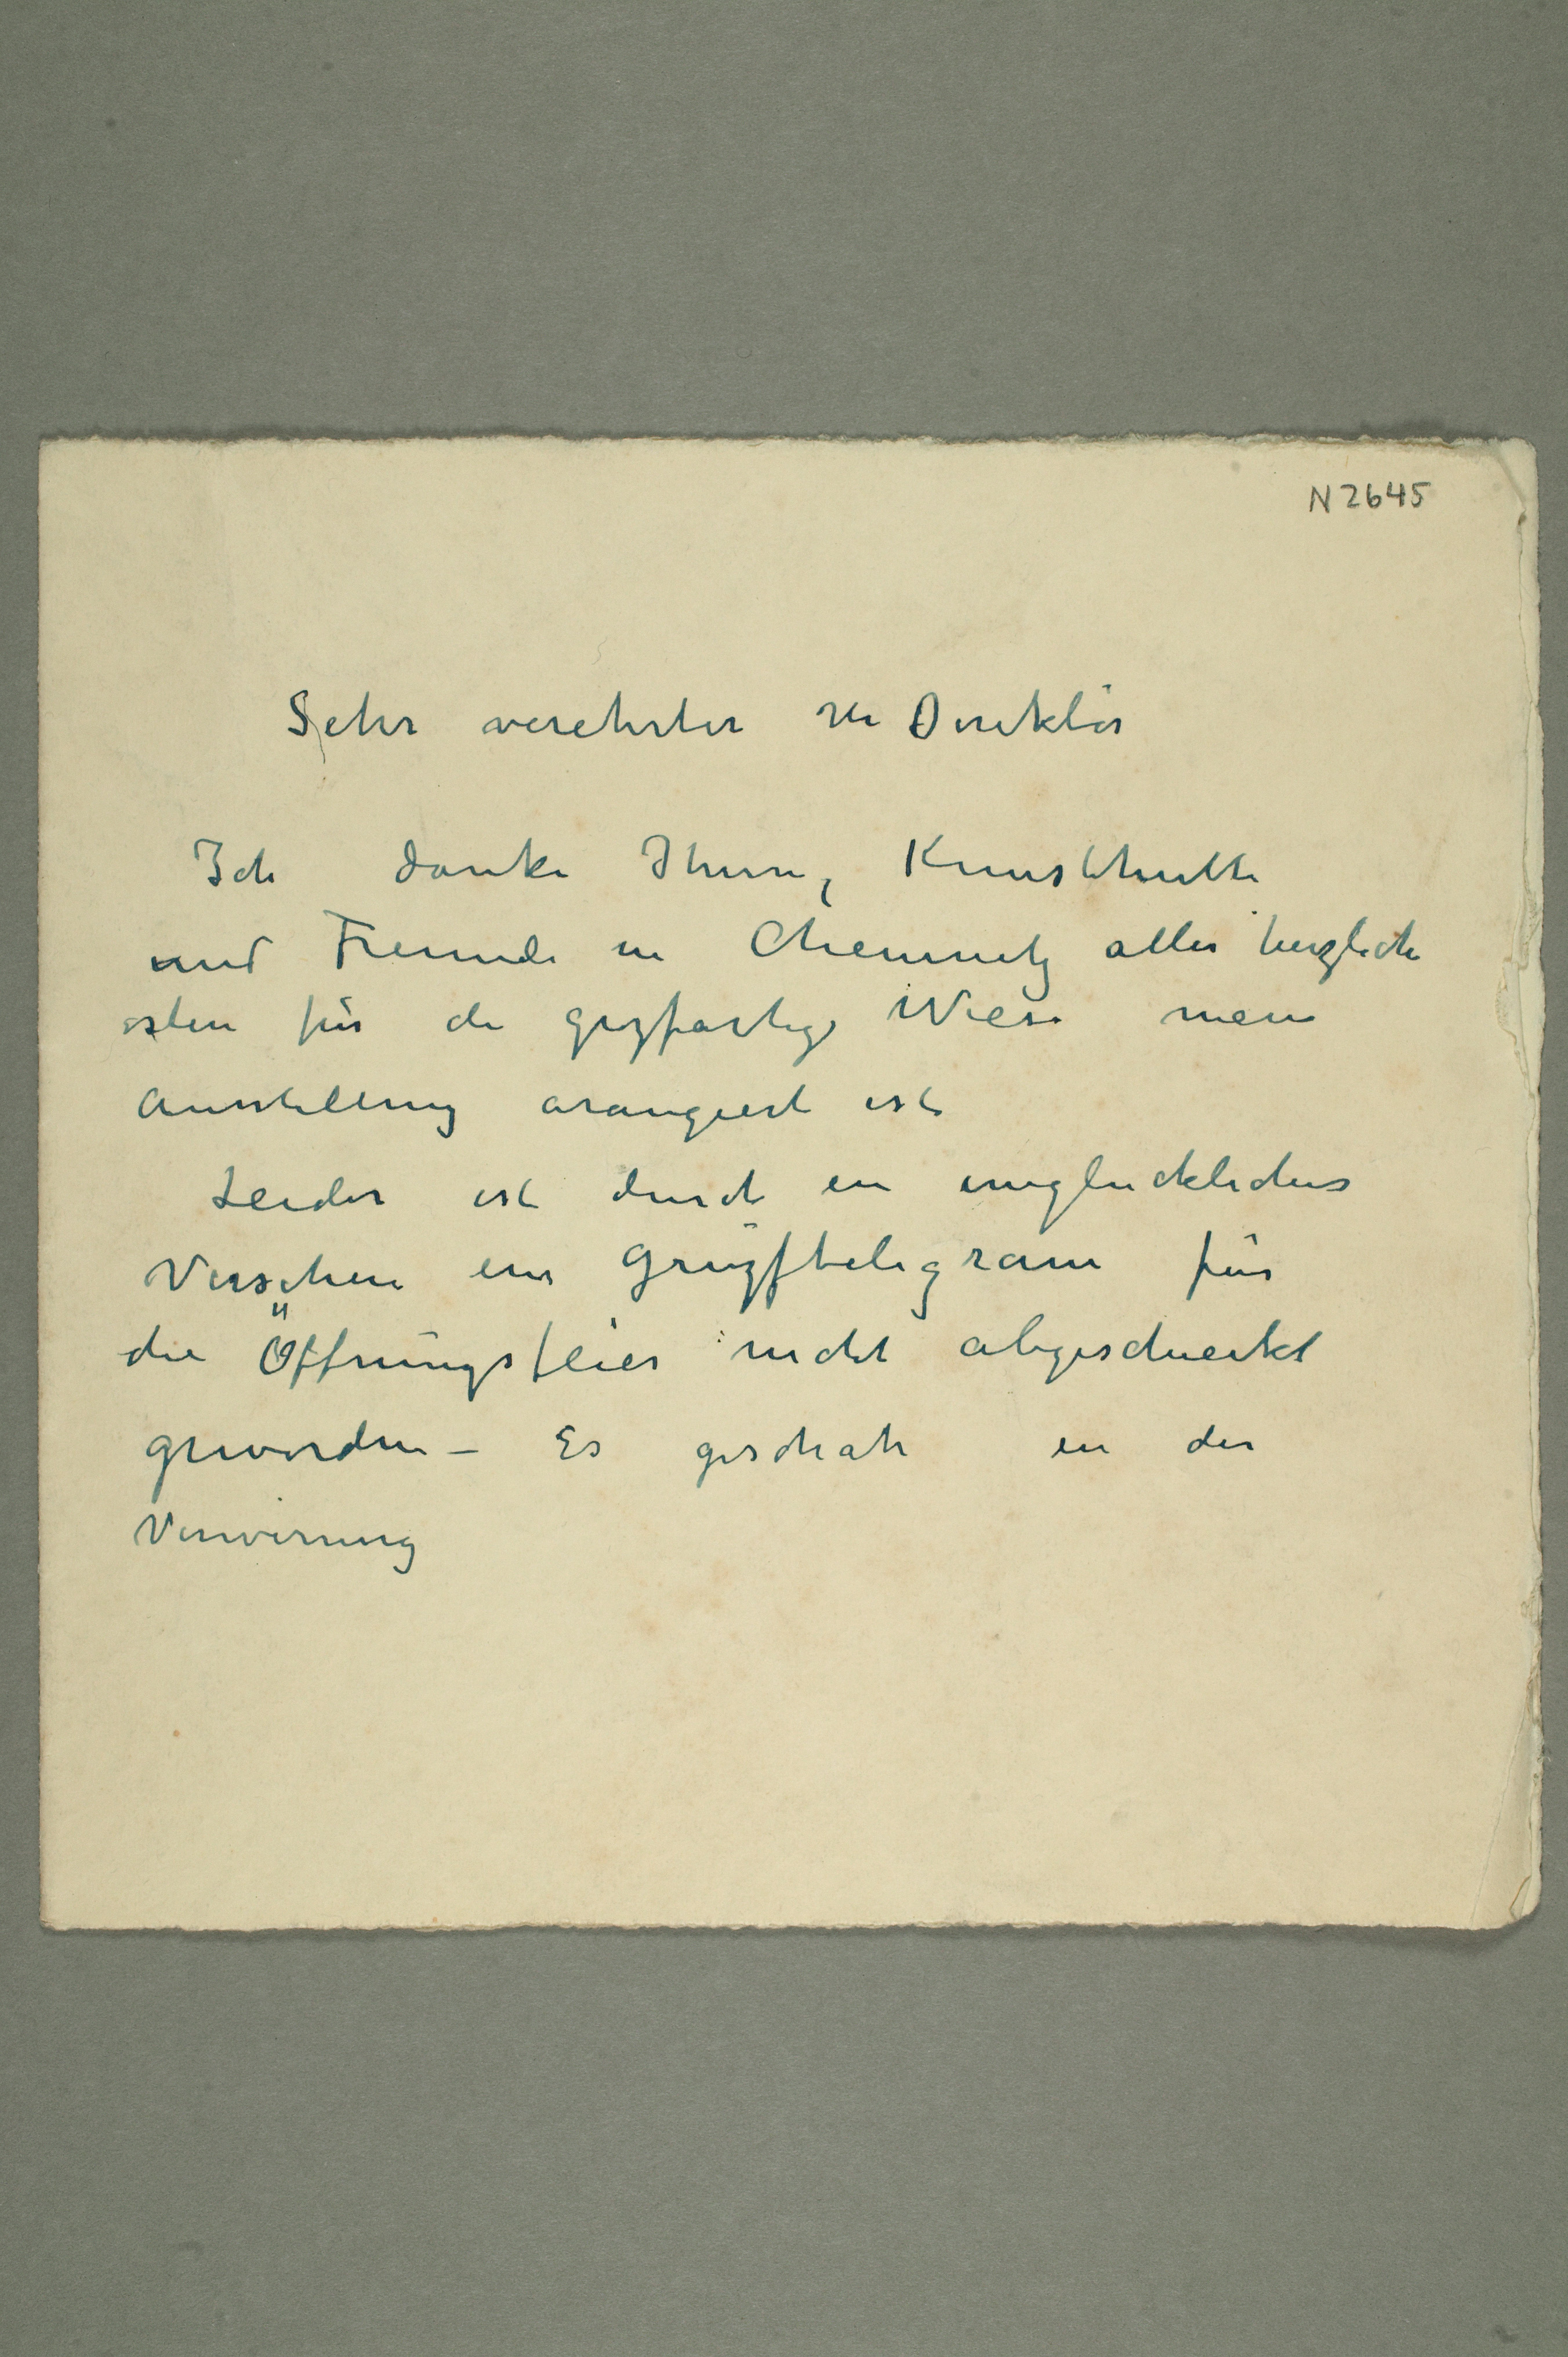 N 2645
Sehr verehrter Hr Direktör
Ich danke Ihnen, Kunsthütte
und Freunde in Chemnitz aller herzlich
sten für die grozfartige Wiese mein
Ausstellung arangiert ist
Leider ist durch ein unglückliches
Versehen ein Gruzftelegram für
die Öffnungsfeier nicht abgeschickt
geworden – Es geschah in der
Verwirrung